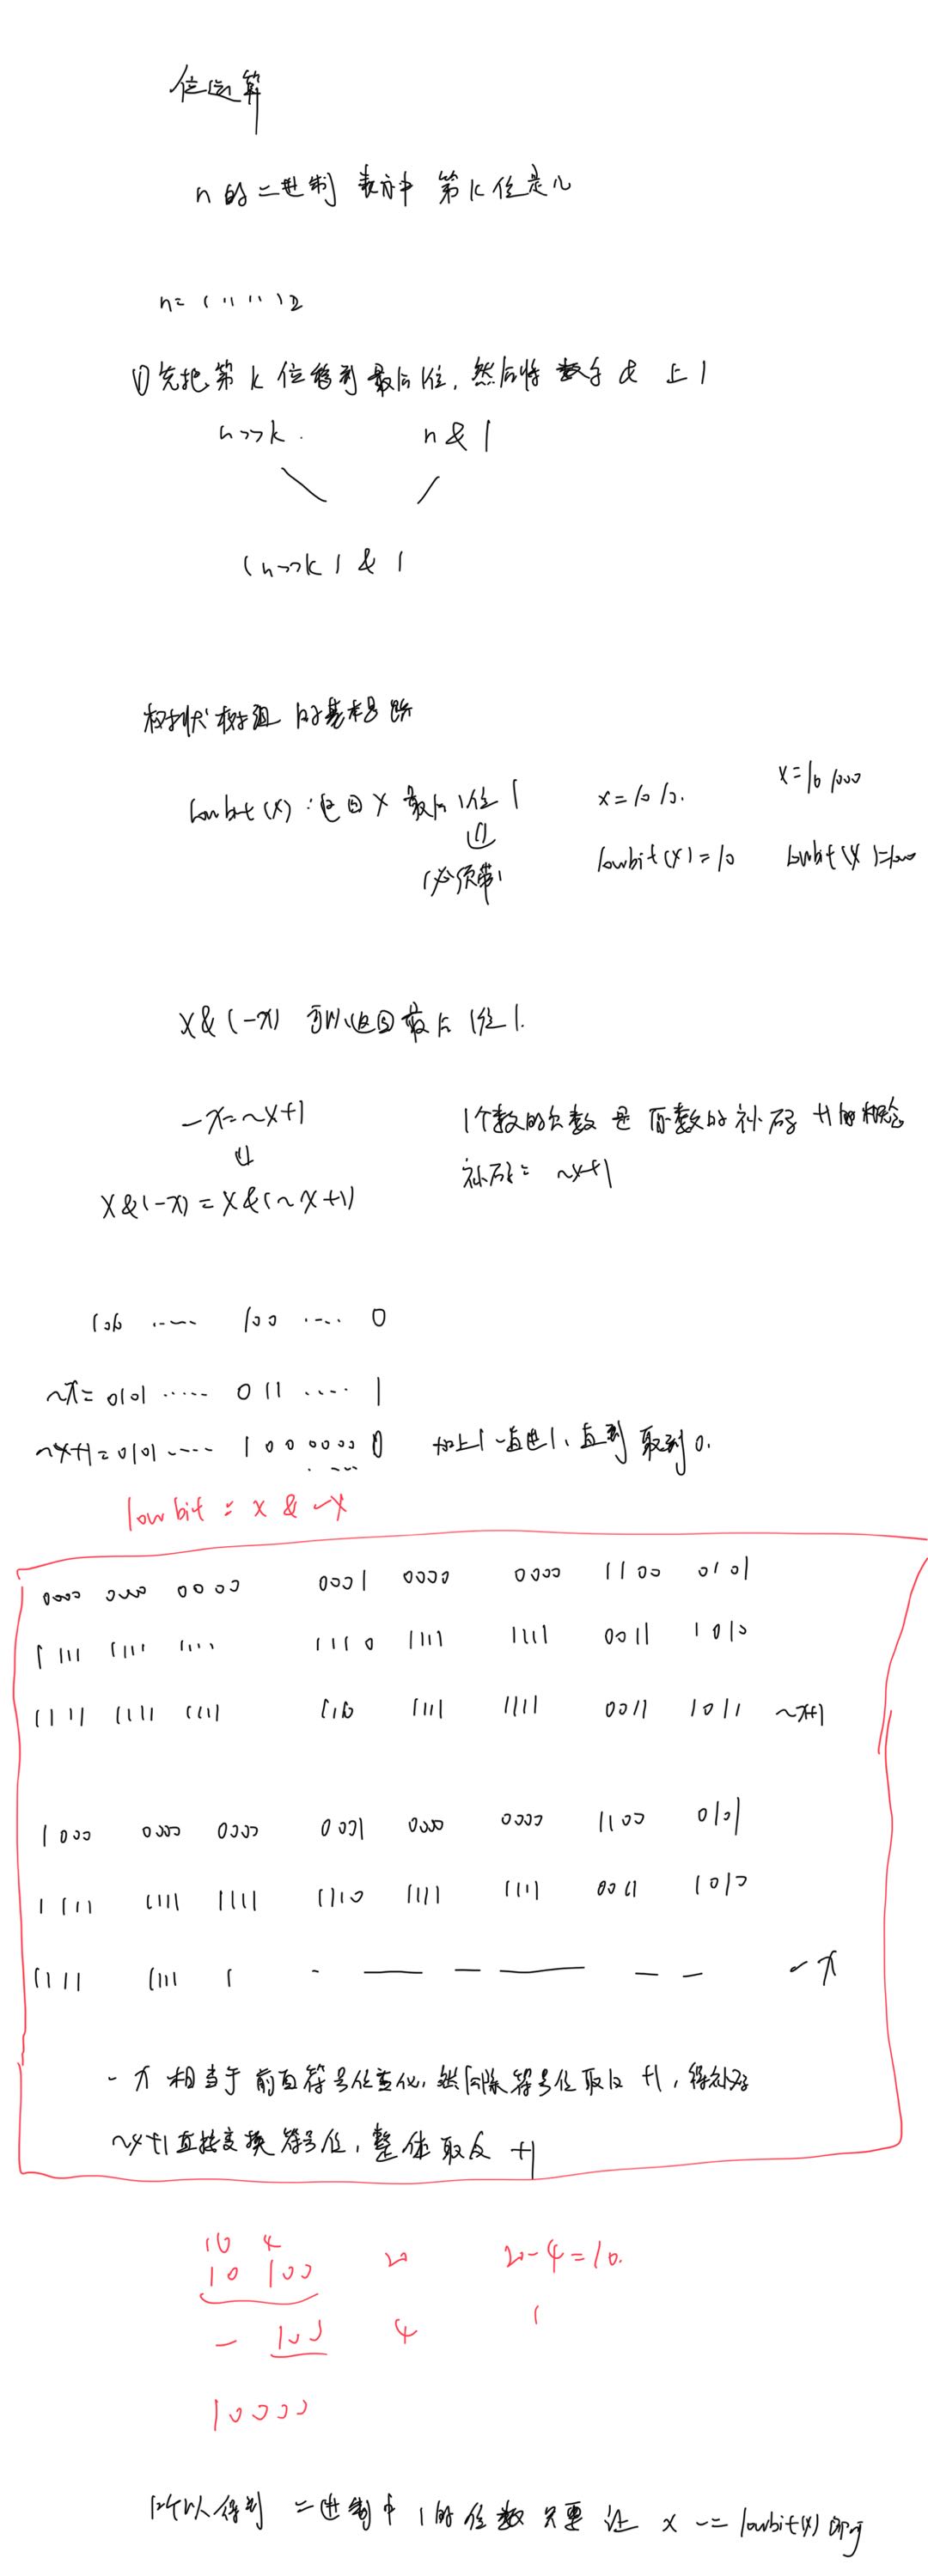 位运算
n 的二进制 表示中 第 k 位是几
n = ( 11 11 )2
① 先把第 k 位移到最后1位, 然后将 数字 & 上 1
n>>k . n & 1
(n>>k) & 1
树状树组 的基本
lowbit(x) : 返回 x 最后1位 1 x = 1010. x = 101000
⇓
(必须带) lowbit(x) = 10 lowbit(x) = 1000
x & (-x) 可以返回最后 1位 1.
-x = ~x+1 1个数的负数 是 原数的 补码 +1的概念
⇓ 补码 = ~x+1
x & (-x) = x & (~x+1)
100 ..... 100 .... 0
~x = 0101 ..... 011 .... 1
~x+1 = 0101 .... 1 0 0 0000 0 加上1 一直进1, 直到 取到 0.
lowbit = x & -x
0000 0000 0000 0001 0000 0000 1100 0101
1111 1111 1111 1110 1111 1111 0011 1010
1111 1111 1111 1110 1111 1111 0011 1011 ~x+1
1000 0000 0000 0001 0000 0000 1100 0101
1111 1111 1111 1110 1111 1111 0011 1010
1111 1111 1 - — — — — — -x
- x 相当于 前面符号位变化, 然后除 符号位 取反 +1, 得补码
~x+1 直接变换 符号位, 整体 取反 +1
10 4
10 100 20 20-4=10.
- 100 4 1
10000
所以 得到 二进制中 1的 位数 只要 让 x -= lowbit(x) 即可